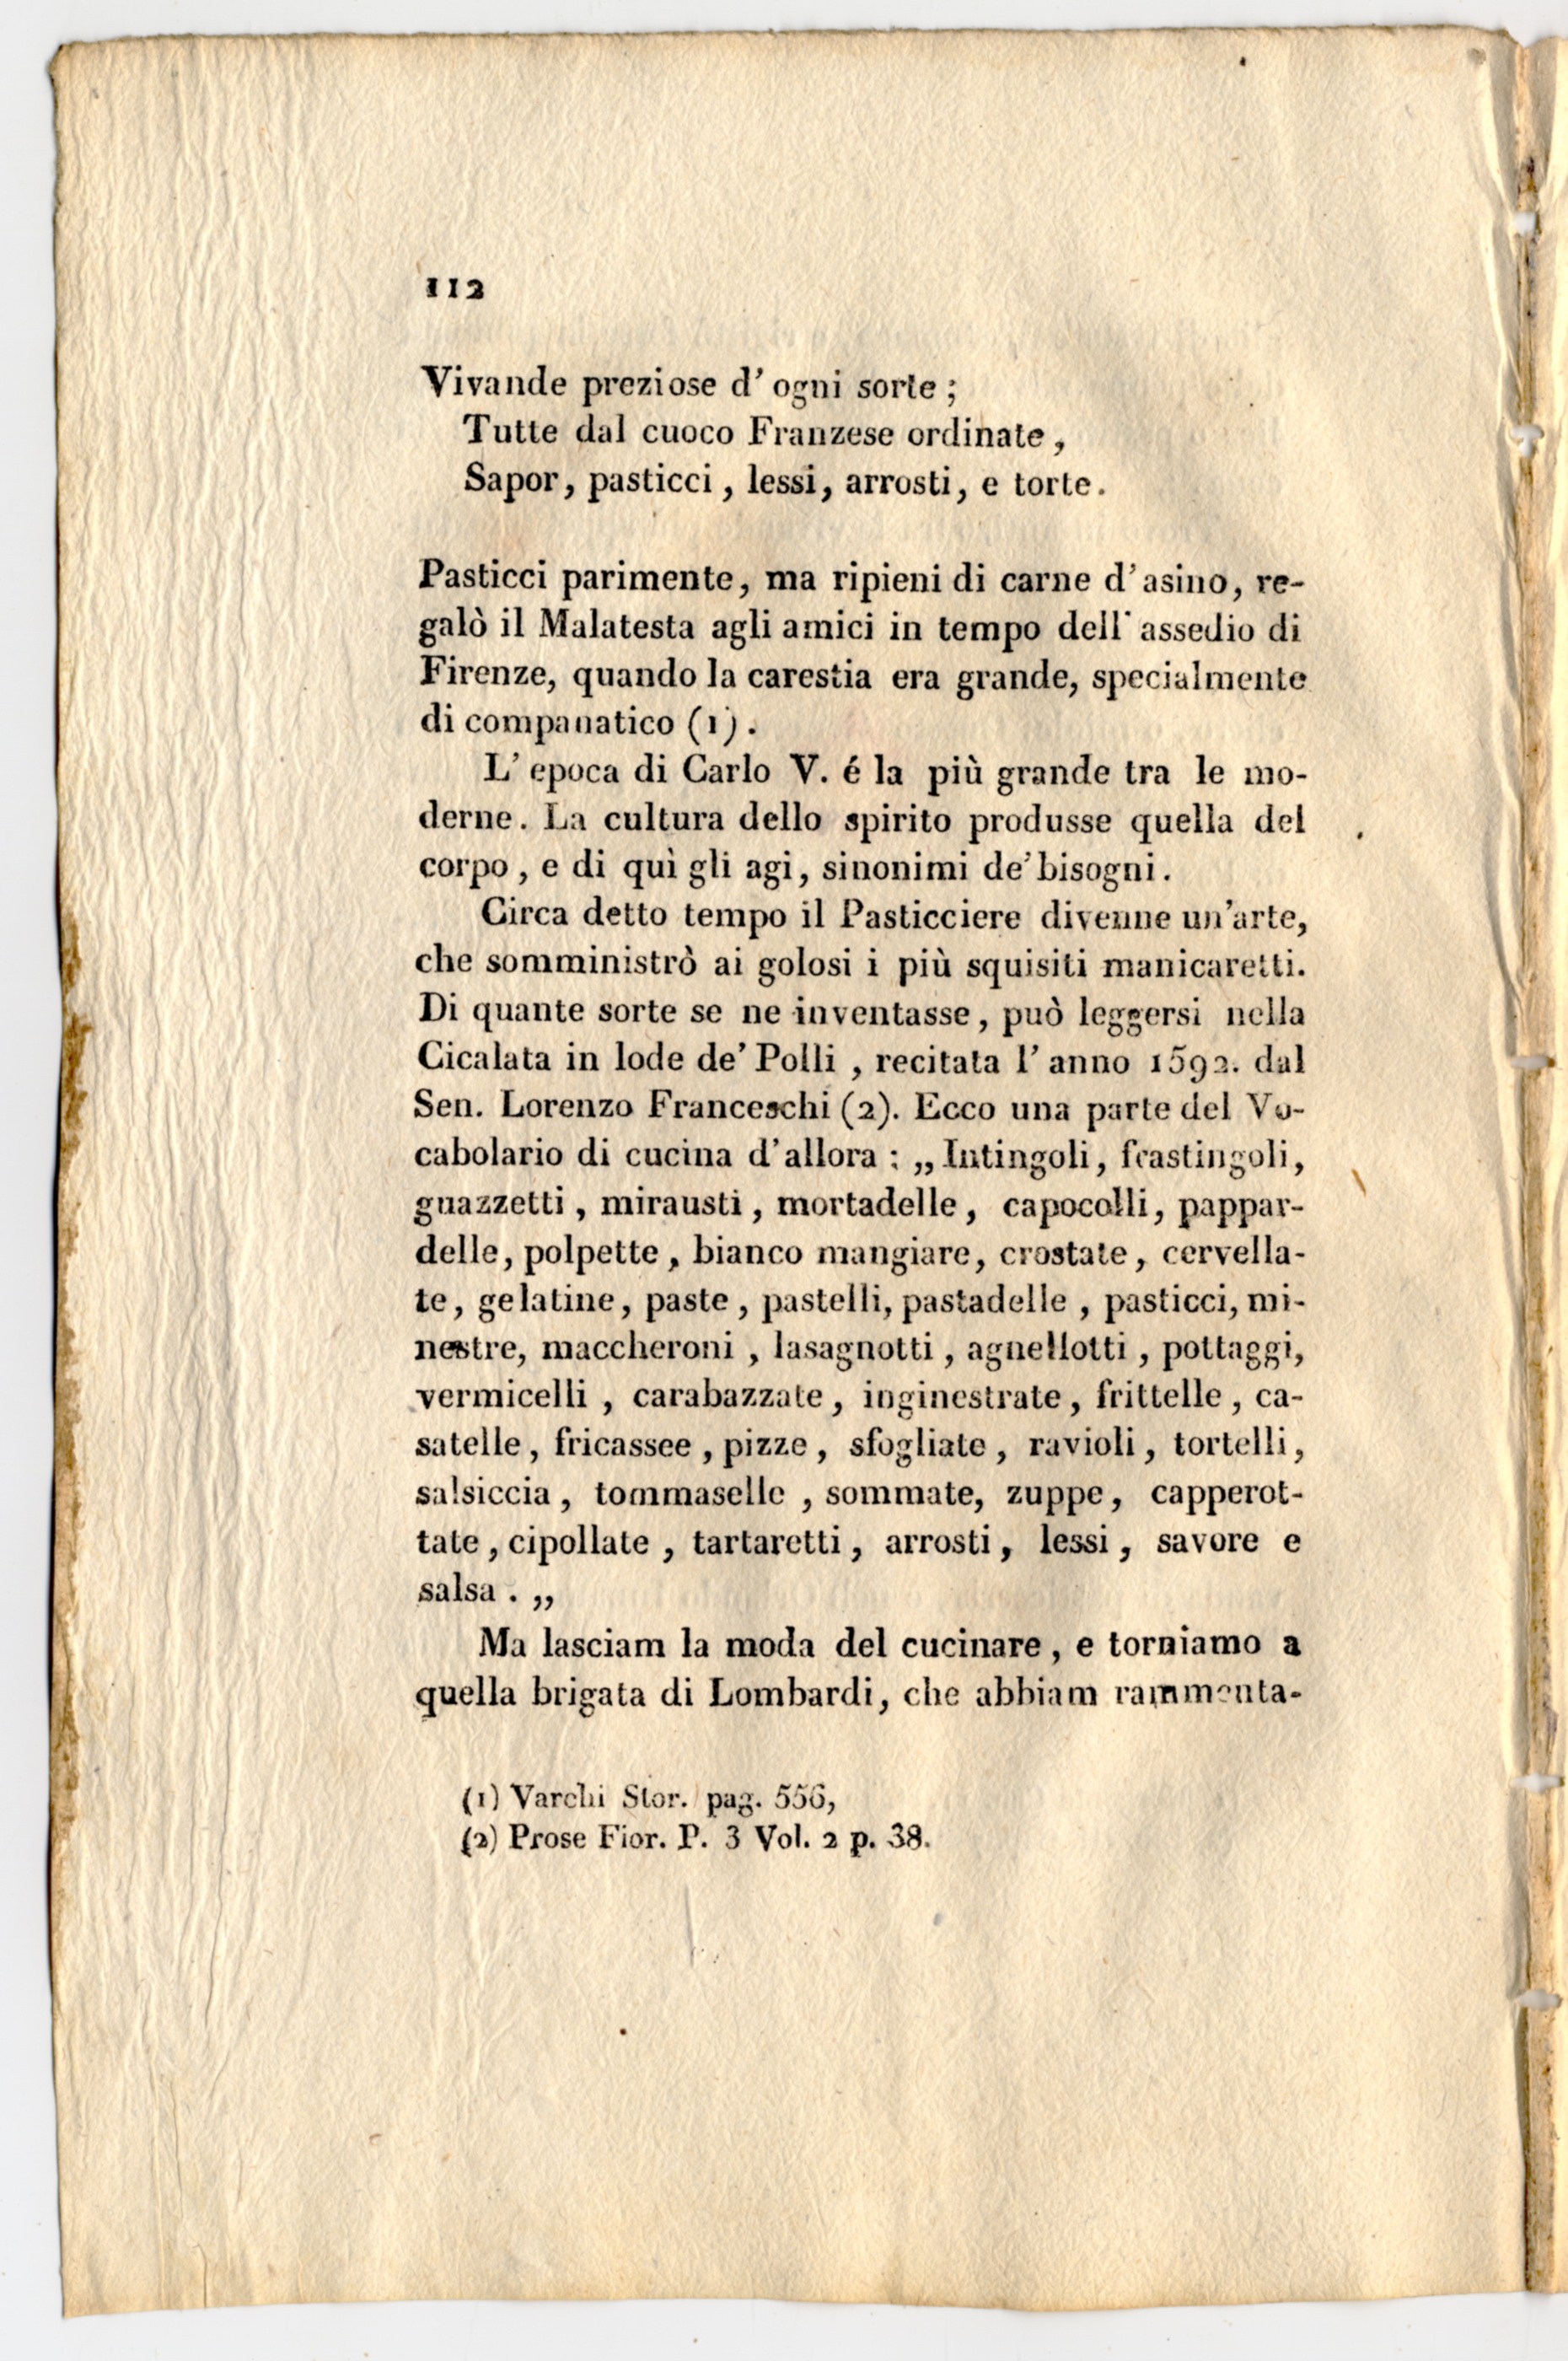 112
Vivande preziose d' ogni sorte ;
Tutte dal cuoco Franzese ordinate ,
Sapor, pasticci , lessi, arrosti, e torte.
Pasticci parimente, ma ripieni di carne d'asino, re-
galò il Malatesta agli amici in tempo dell' assedio di
Firenze, quando la carestia era grande, specialmente
di companatico (1).
L' epoca di Carlo V. é la più grande tra le mo-
derne. La cultura dello spirito produsse quella del
corpo , e di quì gli agi, sinonimi de' bisogni.
Circa detto tempo il Pasticciere divenne un'arte,
che somministrò ai golosi i più squisiti manicaretti.
Di quante sorte se ne inventasse, può leggersi nella
Cicalata in lode de' Polli , recitata l' anno 1592. dal
Sen. Lorenzo Franceschi (2). Ecco una parte del Vo-
cabolario di cucina d'allora : „ Intingoli, frastingoli,
guazzetti , mirausti , mortadelle , capocolli, pappar-
delle, polpette , bianco mangiare, crostate , cervella-
te, gelatine, paste , pastelli, pastadelle , pasticci, mi-
nestre, maccheroni , lasagnotti , agnellotti , pottaggi,
vermicelli , carabazzate , inginestrate , frittelle , ca-
satelle, fricassee , pizze , sfogliate , ravioli, tortelli,
salsiccia , tommaselle , sommate, zuppe, capperot-
tate , cipollate , tartaretti , arrosti , lessi , savore e
salsa . „
Ma lasciam la moda del cucinare , e torniamo a
quella brigata di Lombardi, che abbiam rammenta-
(1) Varchi Stor. pag. 556,
(2) Prose Fior. P. 3 Vol. 2 p. 38.